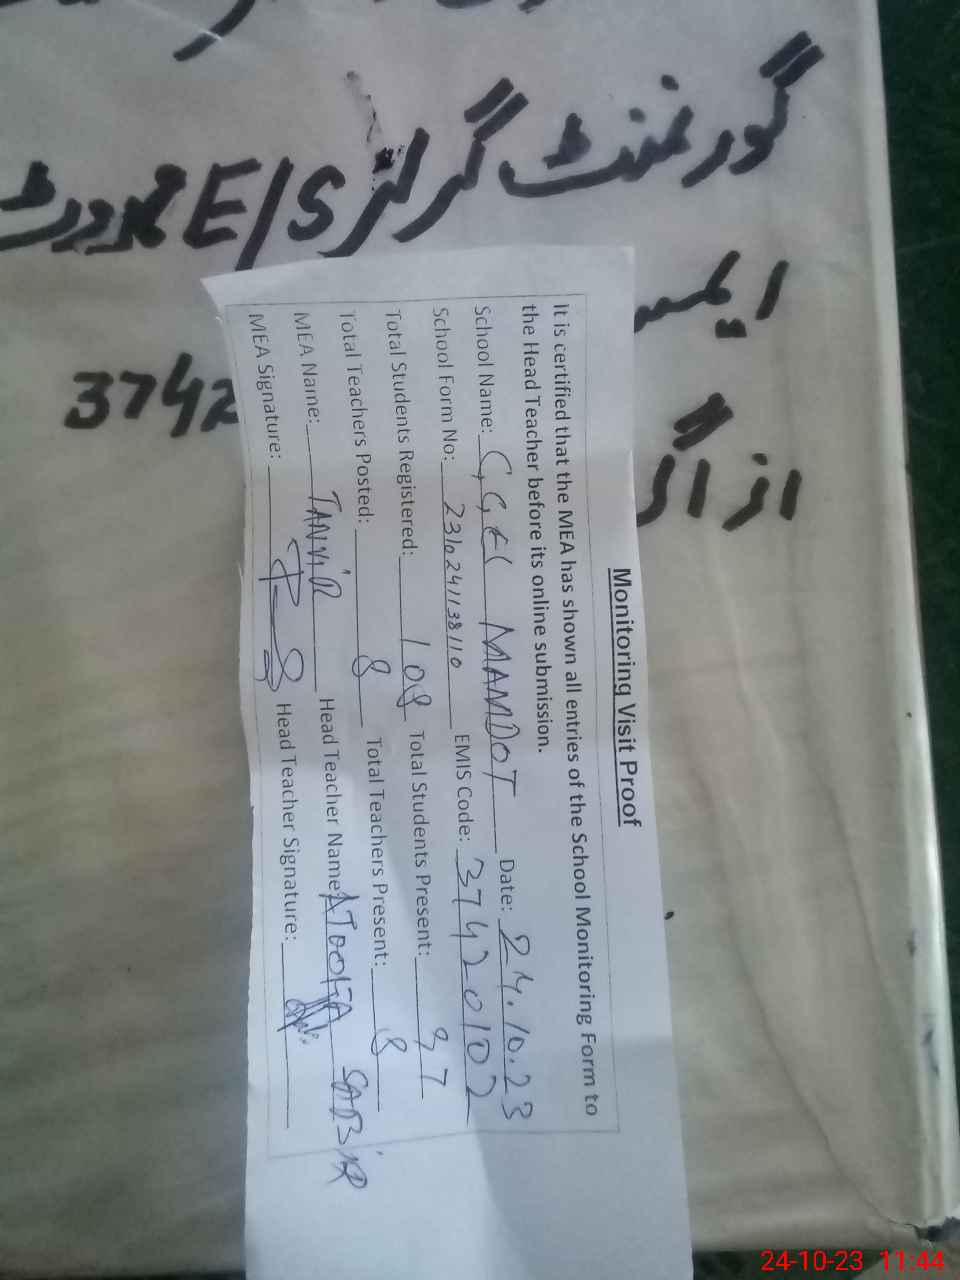 گورنمنٹ گرلز E/S ممدوٹ
3742
Monitoring Visit Proof
It is certified that the MEA has shown all entries of the School Monitoring Form to
the Head Teacher before its online submission.
School Name: GGES MAMDOT Date: 24.10.23
School Form No: 2310241138110 EMIS Code: 37420102
Total Students Registered: 108 Total Students Present: 37
Total Teachers Posted: 8 Total Teachers Present: 8
MEA Name: TANVIR Head Teacher Name: ATOOFA SABIR
MEA Signature: Head Teacher Signature:
24-10-23 11:44